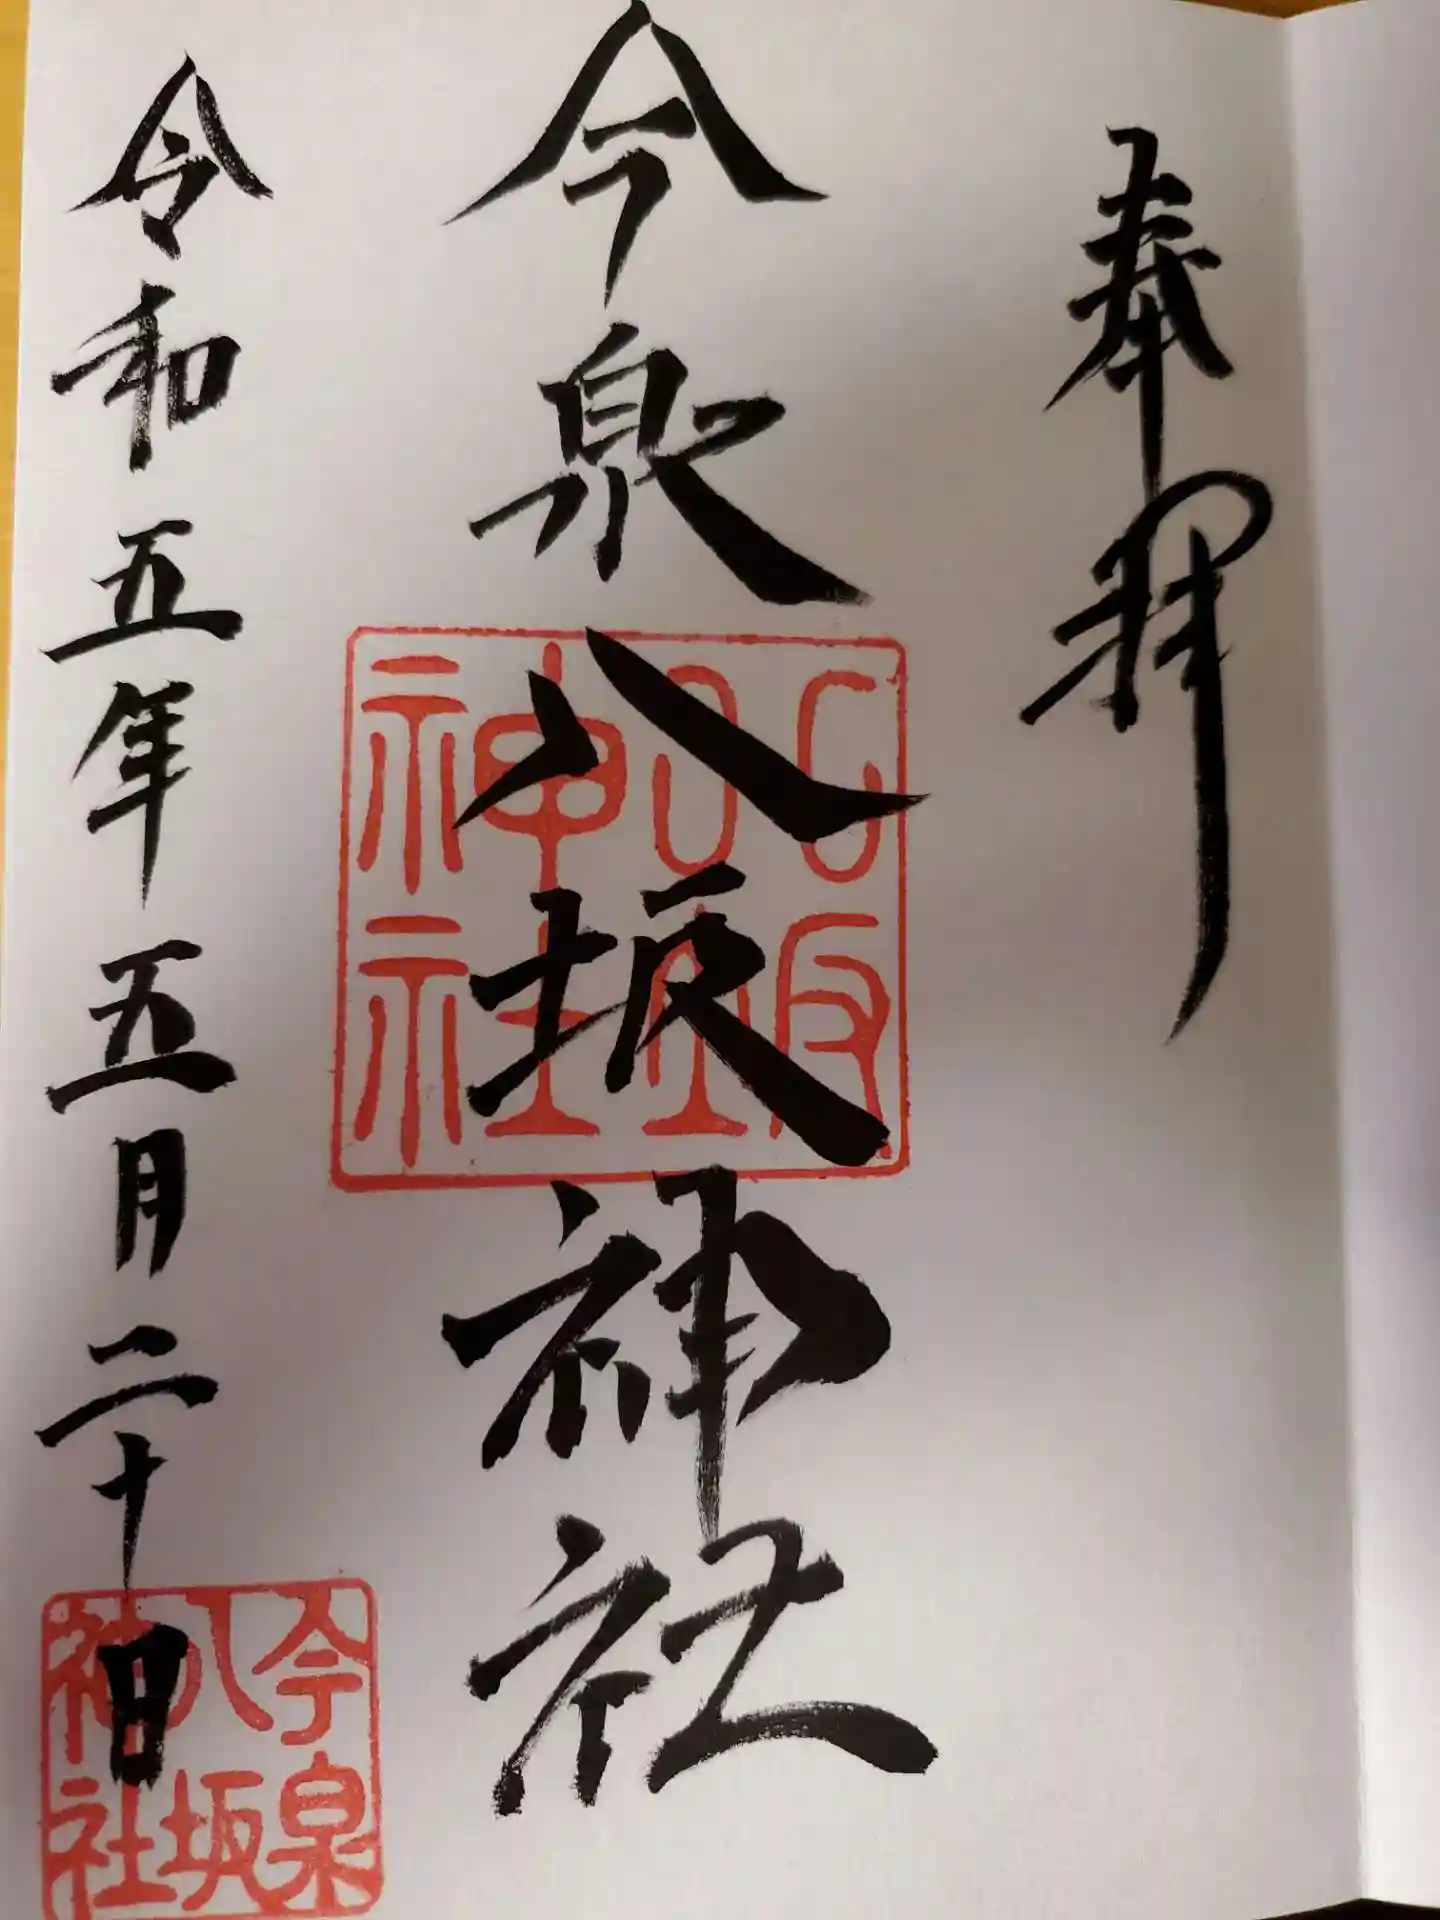 奉拝
今泉八坂神社
八坂神社
令和五年五月二十日
今泉八坂神社